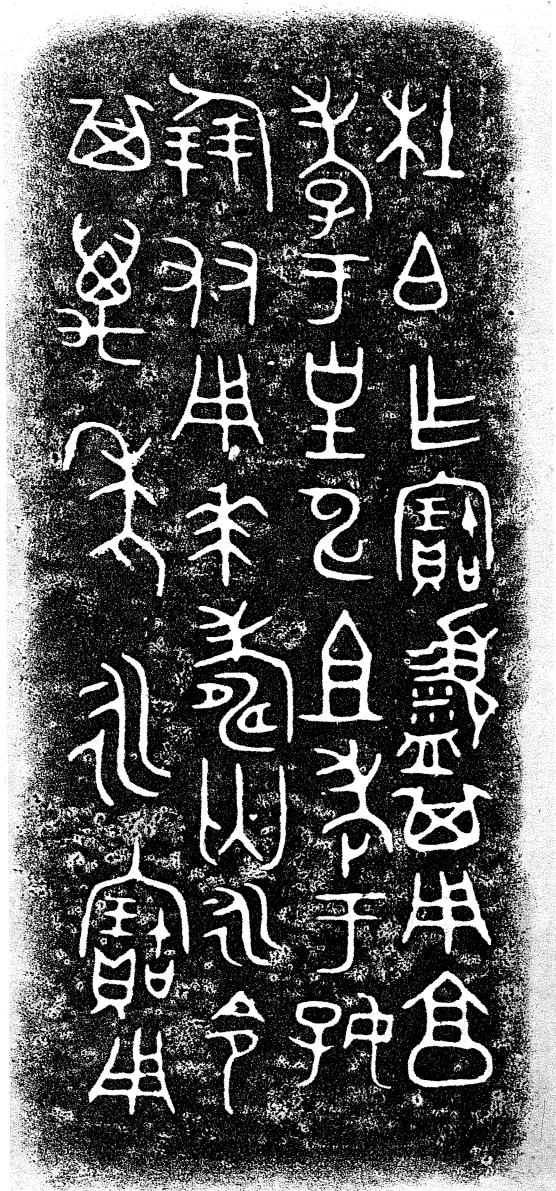 杜白乍寶盨其用享
孝于皇申且考于好
倗友用𠦪壽匄永令
其萬年永寶用